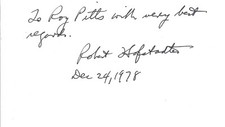 To Roy Pitts with very best
regards.
Robert Hofstadter
Dec 24, 1978